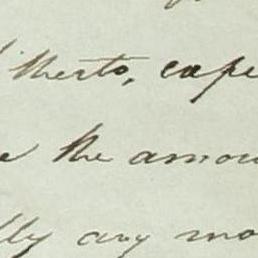 hitherto, cape
the amou
lly any mo